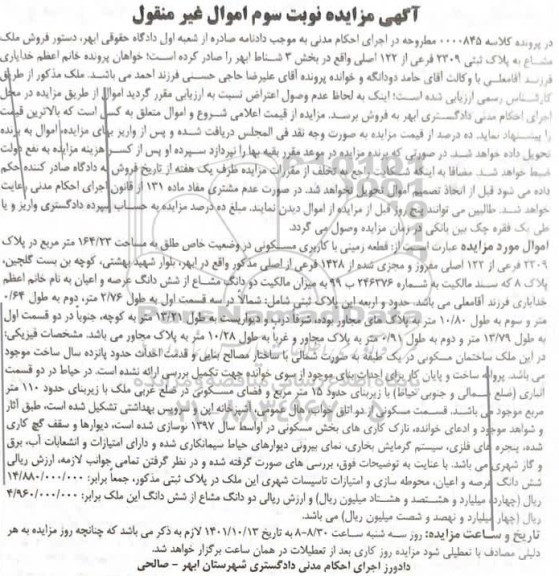 آگهی مزایده نوبت سوم اموال غیر منقول
در پرونده کلاسه 0000845 مطروحه در اجرای احکام مدنی به موجب دادنامه صادره از شعبه اول دادگاه حقوقی ابهر، دستور فروش ملک
مشاع به پلاک ثبتی 2309 فرعی از 122 اصلی واقع در بخش 3 شناط ابهر را صادر کرده است؛ خواهان پرونده خانم اعظم خدایاری
فرزند آقامعلی با وکالت آقای حامد دودانگه و خوانده پرونده آقای علیرضا حاجی حسنی فرزند احمد می باشد. ملک مذکور از طریق
کارشناس رسمی ارزیابی شده است؛ اینک به لحاظ عدم وصول اعتراض نسبت به ارزیابی مقرر گردید اموال از طریق مزایده در محل
اجرای احکام مدنی دادگستری ابهر به فروش برسد. مزایده از قیمت اعلامی شروع و اموال متعلق به کسی است که بالاترین قیمت
را پیشنهاد نماید. ده درصد از قیمت مزایده به صورت وجه نقد فی المجلس دریافت شده و پس از واریز بهای مزایده، اموال به برنده
تحویل داده خواهد شد. در صورتی که برنده مزایده در موعد مقرر بقیه بها را نپردازد سپرده او پس از کسر هزینه مزایده به نفع دولت
ضبط خواهد شد. مضافا به اینکه شکایت راجع به تخلف از مقررات مزایده ظرف یک هفته از تاریخ فروش به دادگاه صادر کننده حکم
داده می شود قبل از اتخاذ تصمیم اموال تحویل نخواهد شد. در صورت عدم مشتری مفاد ماده 131 از قانون اجرای احکام مدنی رعایت
خواهد شد. طالبین می توانند پنج روز قبل از مزایده از اموال دیدن نمایند. مبلغ ده درصد مزایده به حساب سپرده دادگستری واریز و یا
طی یک فقره چک بین بانکی در زمان مزایده وصول می گردد.
اموال مورد مزایده عبارت است از: قطعه زمینی با کاربری مسکونی در وضعیت خاص طلق به مساحت 164/23 متر مربع در پلاک
2309 فرعی از 122 اصلی مفروز و مجزی شده از 1428 فرعی از اصلی مذکور واقع در ابهر، بلوار شهید بهشتی، کوچه بن بست گلچین،
پلاک 8 که سند مالکیت به شماره 246376 ب 99 به میزان مالکیت دو دانگ مشاع از شش دانگ عرصه و اعیان به نام خانم اعظم
خدایاری فرزند آقامعلی می باشد. حدود و اربعه این پلاک ثبتی شامل: شمالاً در سه قسمت اول به طول 2/76 متر، دوم به طول 0/64
متر و سوم به طول 10/80 متر به پلاک های مجاور بوده، شرقا درب و دیواریست به طول 13/21 متر به کوچه، جنوباً در دو قسمت اول
به طول 13/79 متر و دوم به طول 0/91 متر به پلاک مجاور و غربا به طول 10/28 متر به پلاک مجاور می باشد. مشخصات فیزیکی
این ملک ساختمان مسکونی در یک طبقه به صورت شمالی با ساختار مصالح بنایی و قدمت احداث حدود پانزده سال ساخت موجود
می باشد. پروانه ساخت و پایان کار برای احداث بنای موجود از سوی خوانده جهت تکمیل بررسی ارائه نشده است. در حیاط در دو قسمت
انباری (ضلع شمالی و جنوبی حیاط) با زیربنای حدود 15 متر مربع و فضای مسکونی در ضلع غربی ملک با زیربنای حدود 110 متر
مربع موجود می باشد. قسمت مسکونی از دو اتاق خواب، هال عمومی، آشپزخانه اپن و سرویس بهداشتی تشکیل شده است، طبق آثار
و شواهد موجود و ادعای خوانده، نازک کاری های بخش مسکونی در اواسط سال 1397 نوسازی شده است، دیوارها و سقف گچ کاری
شده، پنجره های فلزی، سیستم گرمایش بخاری، نمای بیرونی دیوارهای حیاط سیمانکاری شده و دارای امتیازات و انشعابات آب، برق
و گاز شهری می باشد. با عنایت به توضیحات فوق، بررسی های صورت گرفته شده و در نظر گرفتن تمامی جوانب لازمه، ارزش ریالی
شش دانگ عرصه و اعیان، محوطه سازی و امتیازات تاسیسات شهری این ملک در پلاک ثبتی مذکور، جمعاً برابر: 14/880/000/000
ریال (چهارده میلیارد و هشتصد و هشتاد میلیون ریال) و ارزش ریالی دو دانگ مشاع از شش دانگ این ملک برابر: 4/960/000/000
ریال (چهار میلیارد و نهصد و شصت میلیون ریال) می باشد.
تاریخ و ساعت مزایده: روز سه شنبه ساعت 8/30-8 به تاریخ 1401/10/13 لازم به ذکر می باشد که چنانچه روز مزایده به هر
دلیلی مصادف با تعطیلی شود مزایده روز کاری بعد از تعطیلات در همان ساعت برگزار خواهد شد.
دادورز اجرای احکام مدنی دادگستری شهرستان ابهر - صالحی